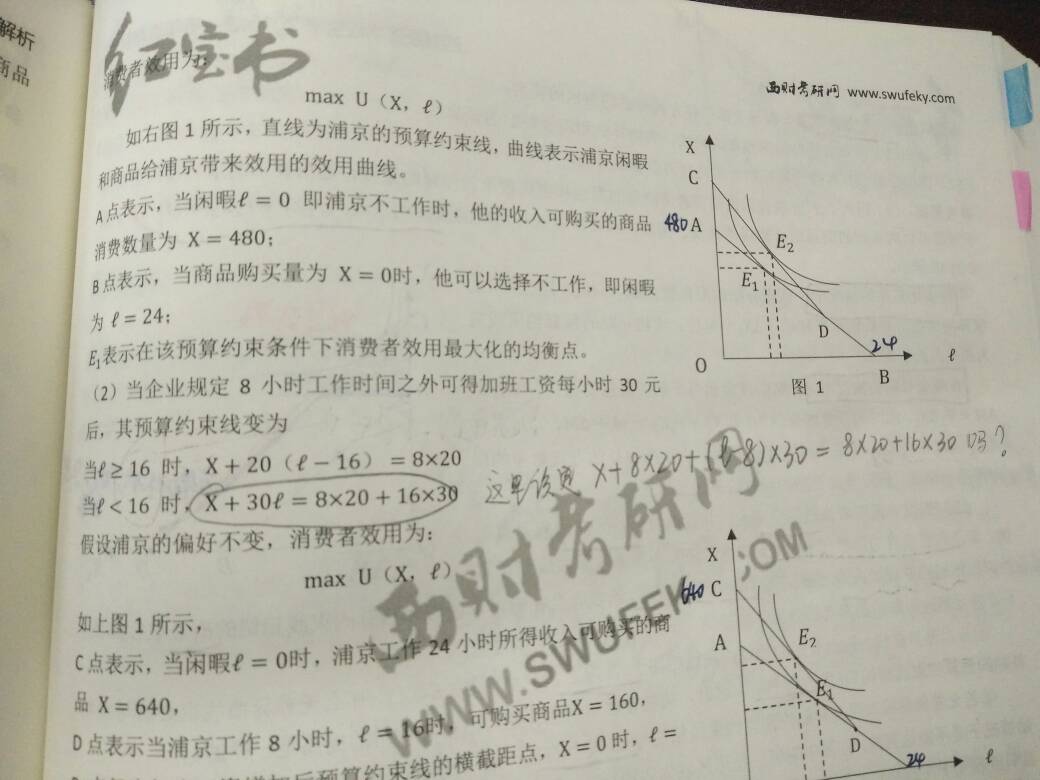 解析
商品
红宝书
西财考研网 www.swufeky.com
消费者效用为:
max U（X，ℓ）
如右图 1 所示，直线为浦京的预算约束线，曲线表示浦京闲暇
和商品给浦京带来效用的效用曲线。
A点表示，当闲暇ℓ = 0 即浦京不工作时，他的收入可购买的商品
消费数量为 X = 480；
B点表示，当商品购买量为 X = 0时，他可以选择不工作，即闲暇
为 ℓ = 24；
E₁表示在该预算约束条件下消费者效用最大化的均衡点。
X
C
480 A
E₂
E₁
D
24
O
B
ℓ
图 1
（2）当企业规定 8 小时工作时间之外可得加班工资每小时 30 元
后，其预算约束线变为
当ℓ ≥ 16 时，X + 20（ℓ − 16） = 8×20
当ℓ < 16 时，X + 30ℓ = 8×20 + 16×30
这里 X + 8×20 + (ℓ-8)×30 = 8×20+16×30 吗？
假设浦京的偏好不变，消费者效用为：
max U（X，ℓ）
如上图 1 所示，
C点表示，当闲暇ℓ = 0时，浦京工作 24 小时所得收入可购买的商
品 X = 640，
D点表示当浦京工作 8 小时，ℓ = 16时，可购买商品X = 160，
预算约束线的横截距点，X = 0 时，ℓ =
X
640 C
A
E₂
E₁
D
24
ℓ
西财考研网
WWW.SWUFEKY.COM